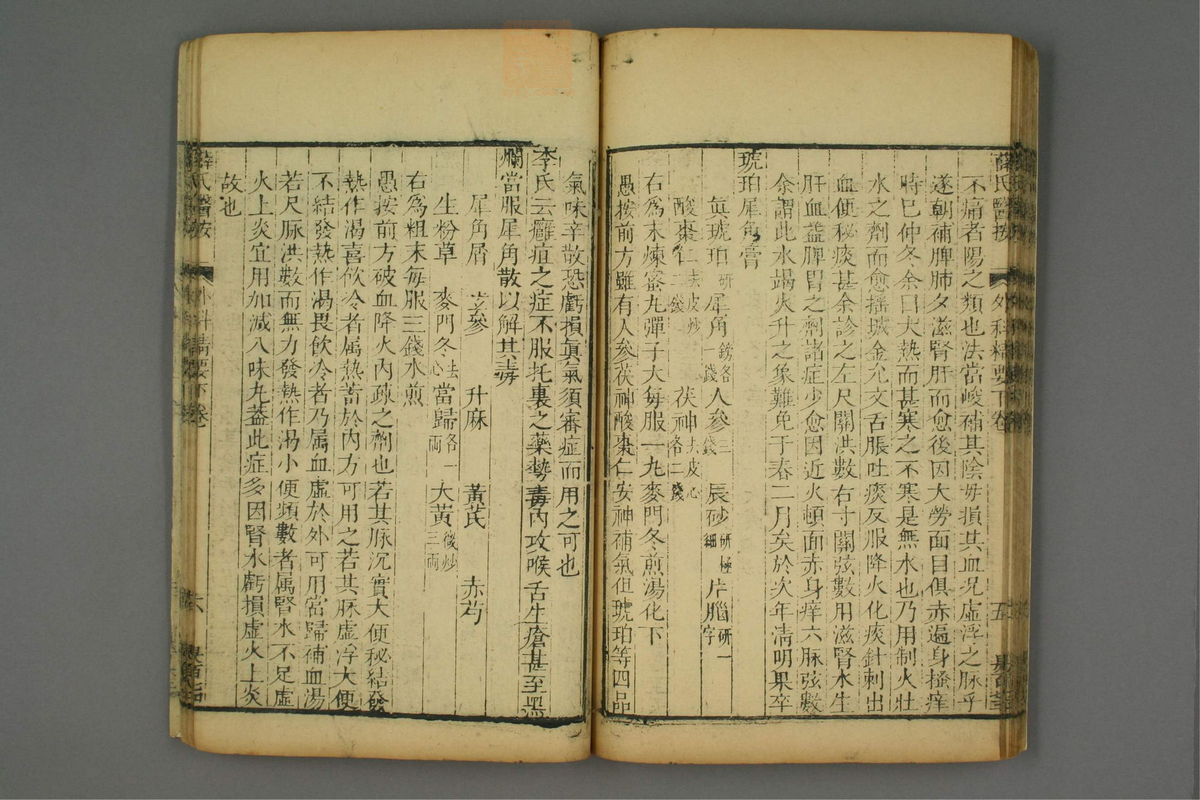 薛氏醫按 外科精要下卷 五
不痛者陽之類也法當峻補其陰毋損其血況虛浮之脉乎
遂朝補脾肺夕滋腎肝而愈後因大勞面目俱赤遍身搔痒
時巳仲冬余曰大熱而甚寒之不寒是無水也乃用制火壯
水之劑而愈搖城金允文舌脹吐痰反服降火化痰針刺出
血便秘痰甚余診之左尺關洪數右寸關弦數用滋腎水生
肝血益脾胃之劑諸症少愈因近火頓面赤身痒六脉弦數
余謂此水竭火升之象難免于春二月矣於次年清明果卒
琥珀犀角膏
眞琥珀研 犀角鎊各一錢 人參三錢 辰砂研極細 片腦研一字
酸棗仁去皮炒二錢 茯神去皮心各二錢
右為末煉蜜丸彈子大每服一丸麥門冬煎湯化下
愚按前方雖有人參茯神酸棗仁安神補氣但琥珀等四品
氣味辛散恐虧損眞氣須審症而用之可也
李氏云癰疽之症不服托裏之藥勢毒內攻喉舌生瘡甚至黑
爛當服犀角散以解其毒
犀角屑 玄參 升麻 黃芪 赤芍
生粉草 麥門冬去心 當歸各一兩 大黃微炒三兩
右爲粗末每服三錢水煎
愚按前方破血降火內疎之劑也若其脉沉實大便秘結發
熱作渴喜飲冷者属熱苦於內方可用之若其脉虛浮大便
不結發熱作渴畏飲冷者乃属血虛於外可用當歸補血湯
若尺脉洪數而無力發熱作渴小便頻數者属腎水不足虛
火上炎宜用加減八味丸葢此症多因腎水虧損虛火上炎
故也
薛氏醫按 外科精要下卷 六